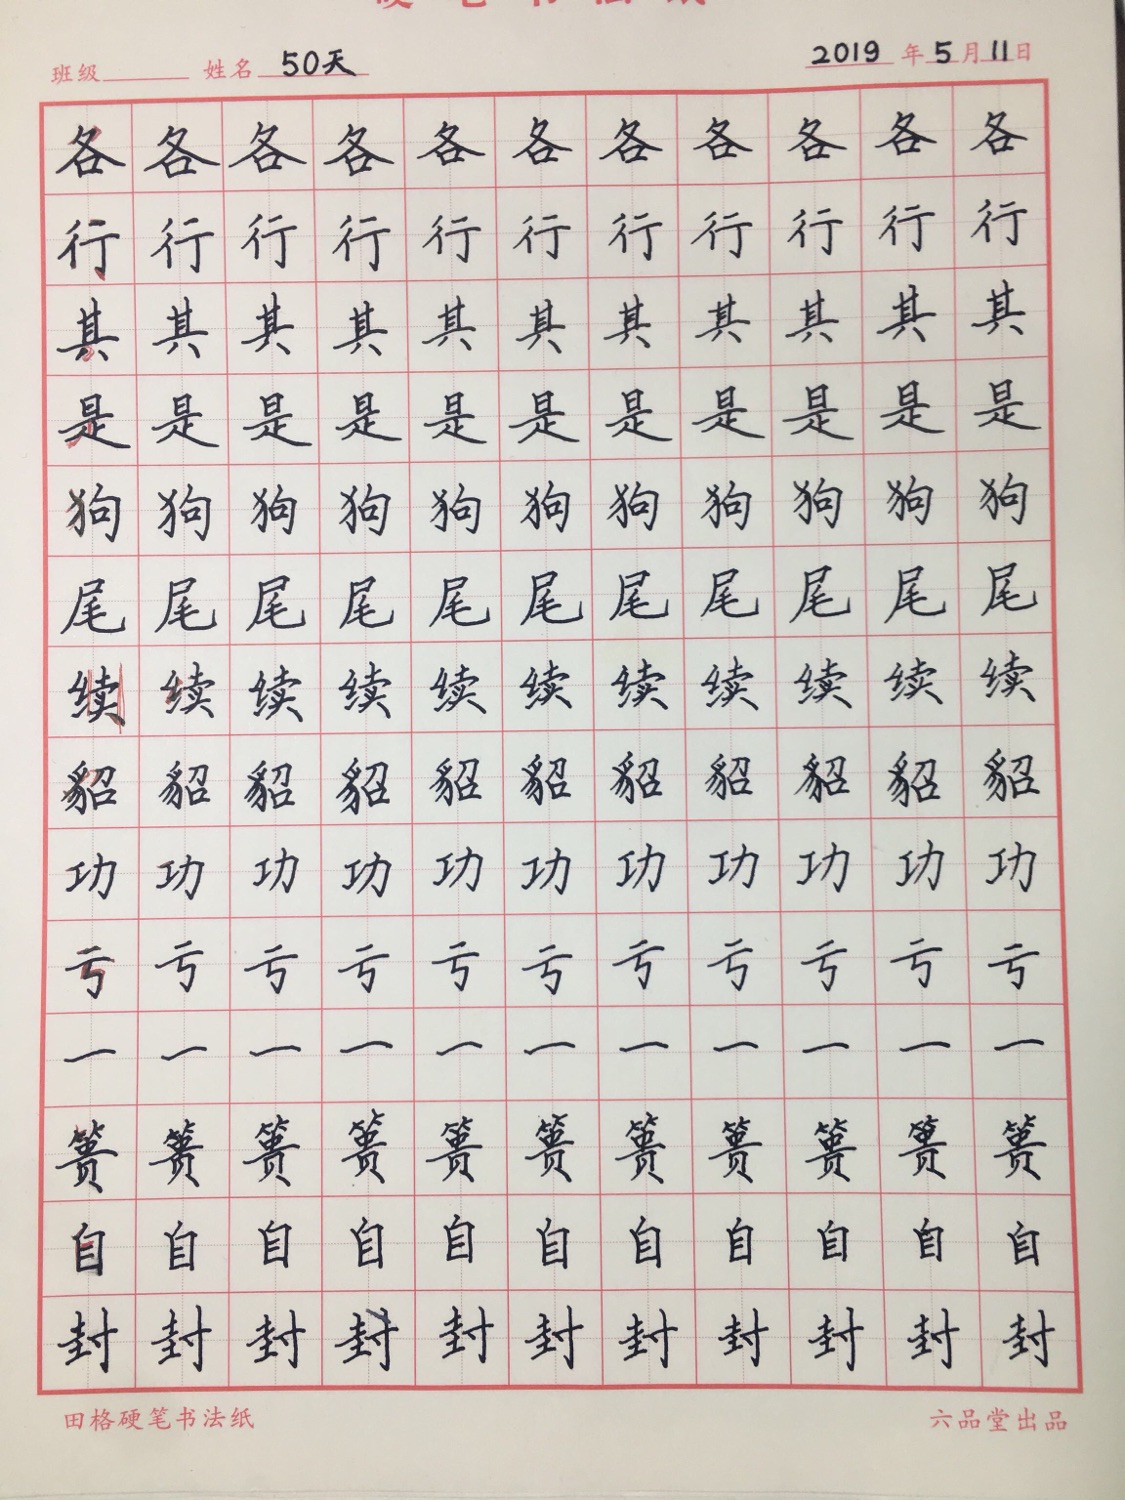 硬笔书法纸
班级 姓名 50天 2019 年 5 月 11 日
各各各各各各各各各各各
行行行行行行行行行行行
其其其其其其其其其其其
是是是是是是是是是是是
狗狗狗狗狗狗狗狗狗狗狗
尾尾尾尾尾尾尾尾尾尾尾
续续续续续续续续续续续
貂貂貂貂貂貂貂貂貂貂貂
功功功功功功功功功功功
亏亏亏亏亏亏亏亏亏亏亏
一一一一一一一一一一一
篑篑篑篑篑篑篑篑篑篑篑
自自自自自自自自自自自
封封封封封封封封封封封
田格硬笔书法纸 六品堂出品